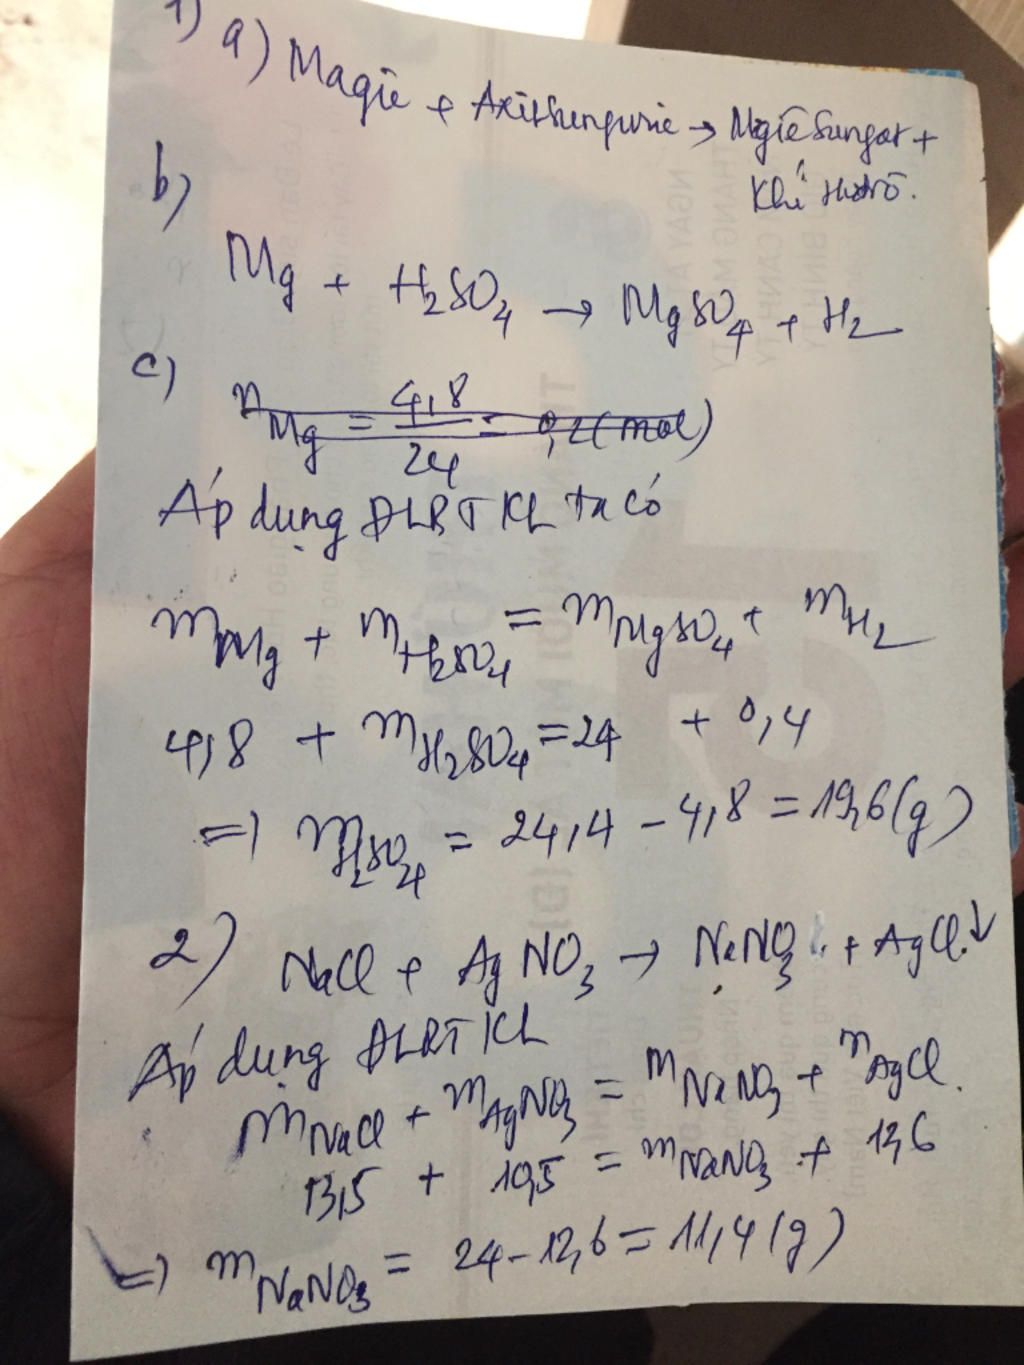 1) a) Magiê + Axit Sunfuric → Mgiê Sungat +
Khí Hidrô.
b)
Mg + H₂SO₄ → MgSO₄ + H₂
c)
n_Mg = 4,8/24 = 0,2 (mol)
Áp dụng ĐLBTKL ta có
m_Mg + m_H₂SO₄ = m_MgSO₄ + m_H₂
4,8 + m_H₂SO₄ = 24 + 0,4
=> m_H₂SO₄ = 24,4 - 4,8 = 19,6 (g)
2) NaCl + AgNO₃ → NaNO₃ + AgCl↓
Áp dụng ĐLBTKL
m_NaCl + m_AgNO₃ = m_NaNO₃ + m_AgCl.
13,5 + 10,5 = m_NaNO₃ + 12,6
=> m_NaNO₃ = 24 - 12,6 = 11,4 (g)